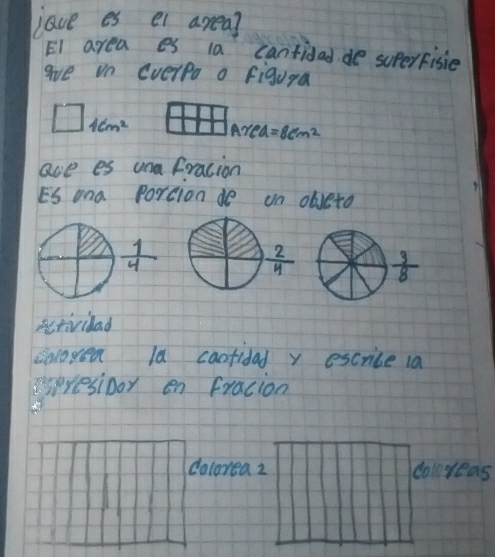 ¿Que es el area?
El area es la cantidad de superfisie
que un cuerpo o figura
1cm² Area=8cm²
Que es una fracion
Es una Porcion de un objeto
1/4 2/4 3/8
Actividad
colorea la cantidad y escribe la
espresidor en fracion
colorea 2 colorea 5